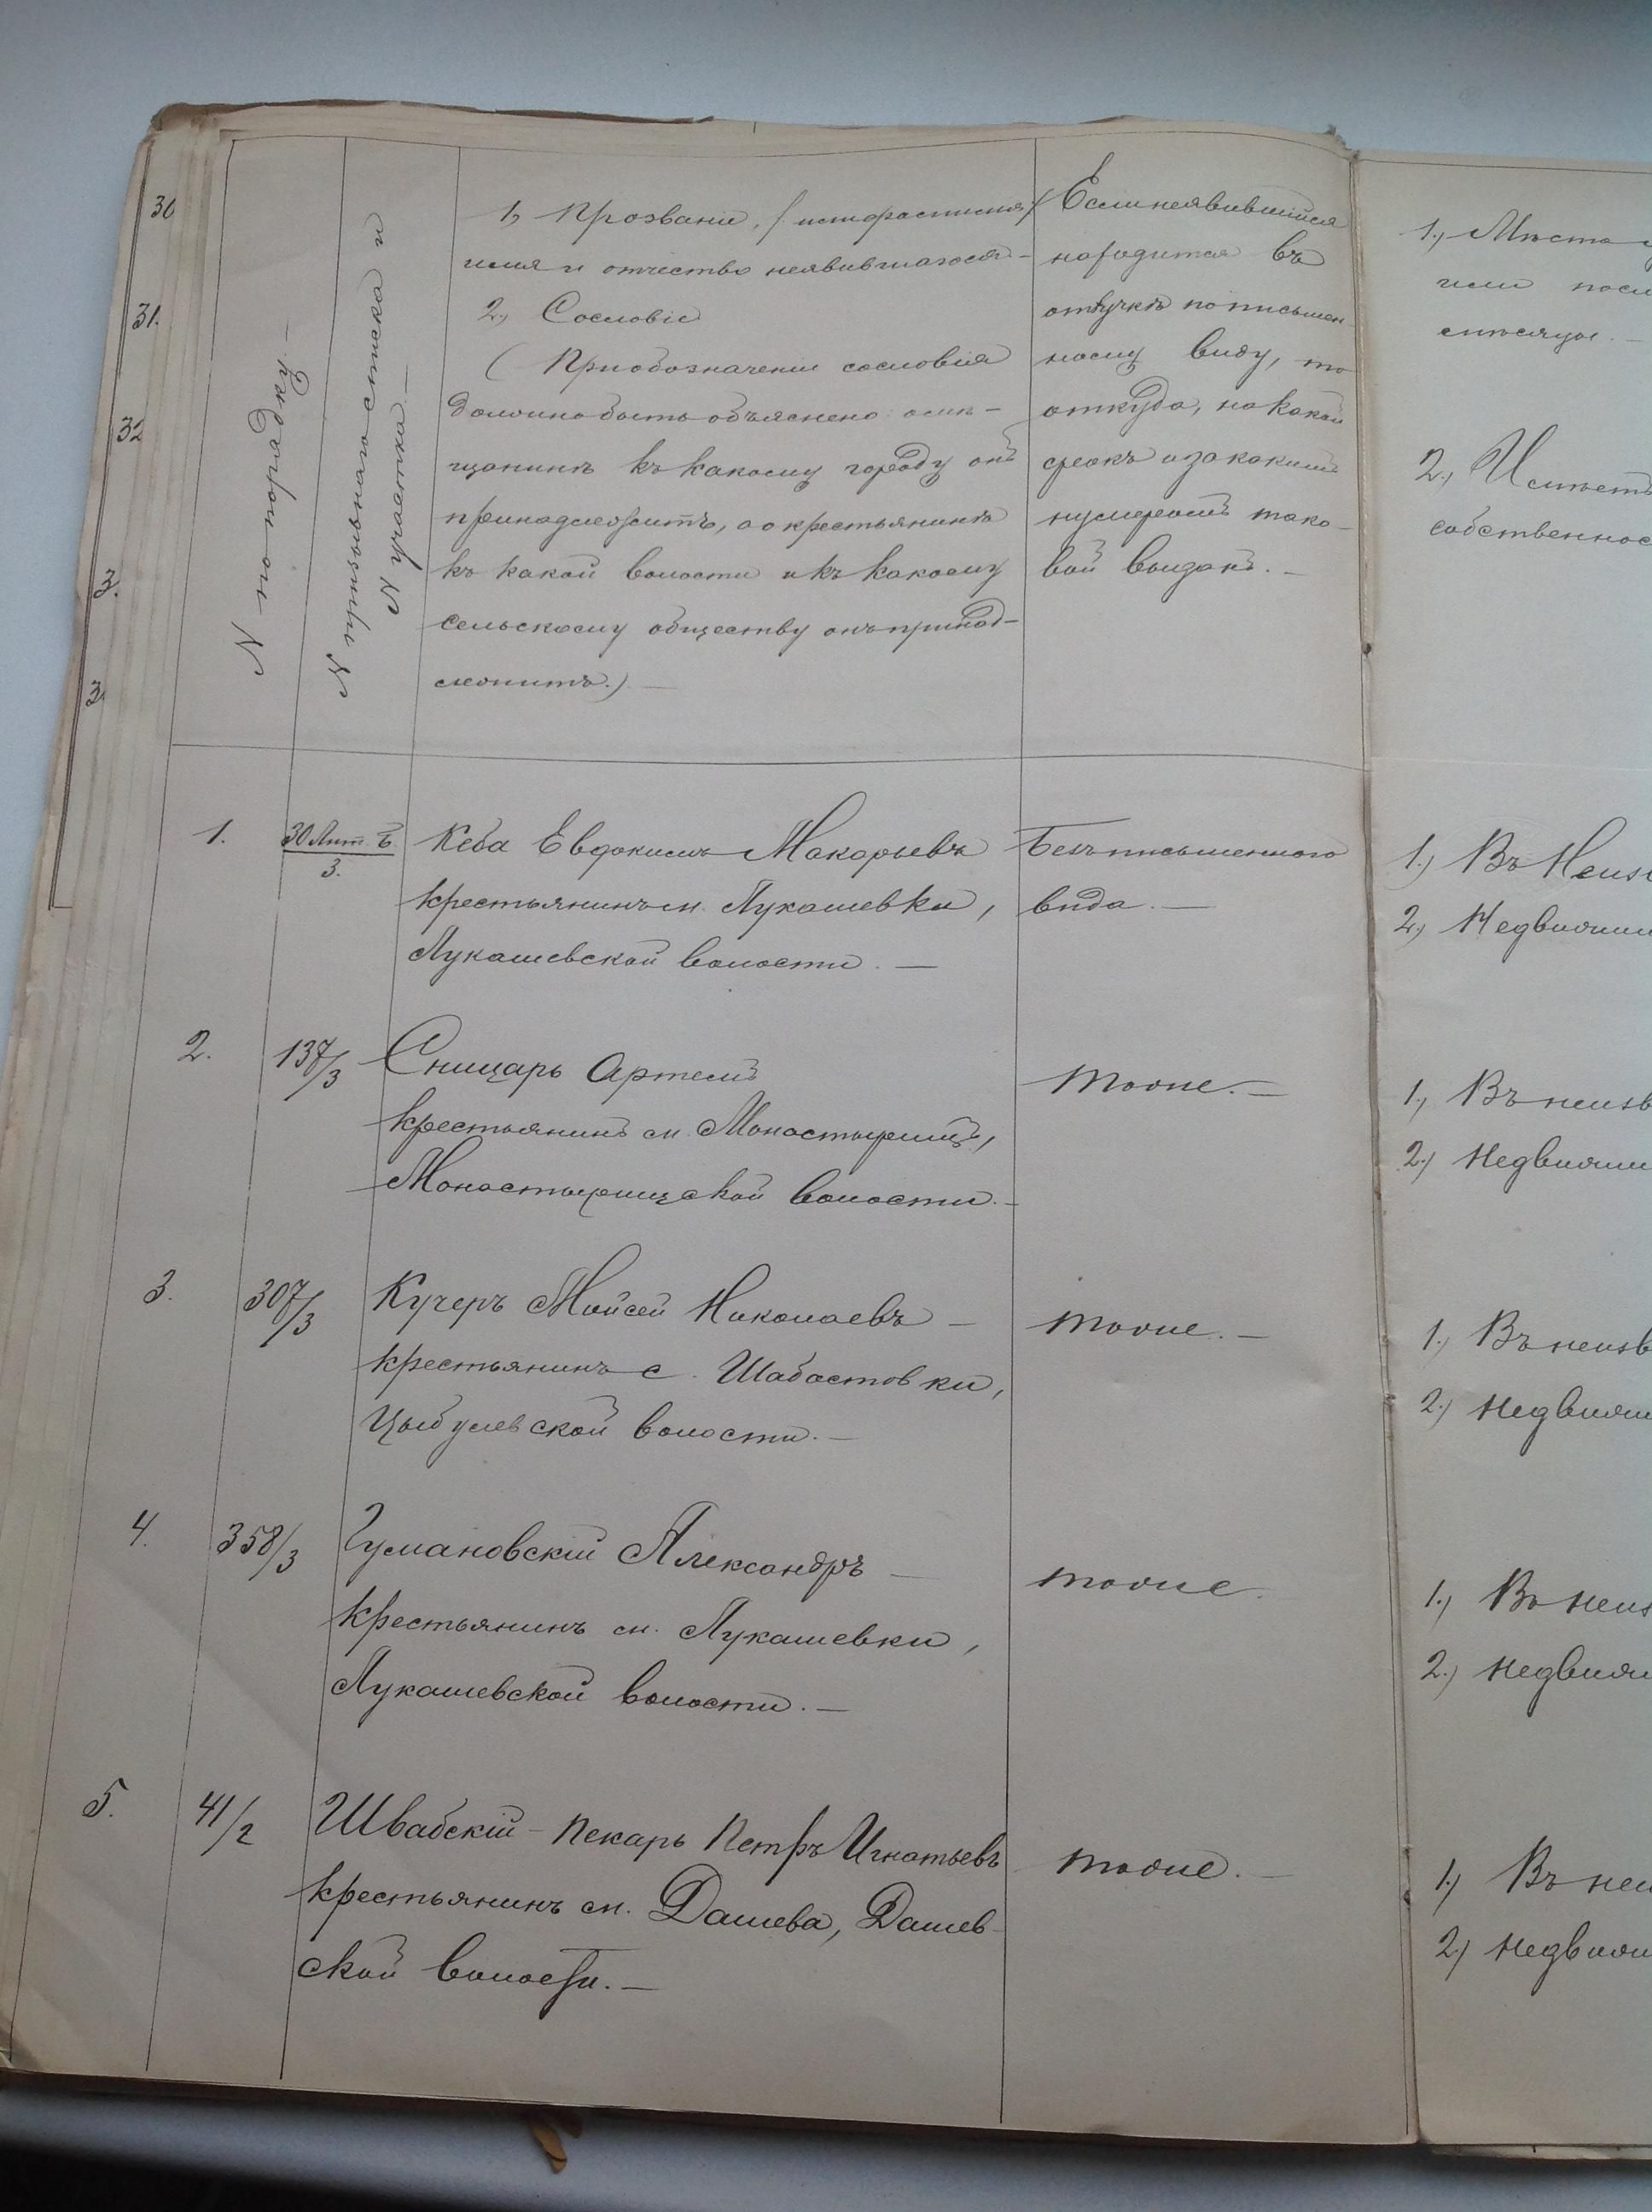 30
31.
32
3.
3.
№ по порядку. —
№ призывнаго списка и
№ участка. —
1, Прозваніе, /или фамилія/
имя и отчество неявившагося —
2, Сословіе
( При обозначеніи сословія
должно быть объяснено: о мѣ-
щанинѣ къ какому городу онъ
принадлежитъ, а о крестьянинѣ
къ какой волости и къ какому
сельскому обществу онъ принад-
лежитъ.) —
Если неявившійся
находится въ
отлучкѣ по письмен-
ному виду, то
откуда, на какой
срокъ и за какимъ
нумеромъ тако-
вой выданъ. —
1., Мѣсто
или
2., Имѣетъ
собственнос
1. 30 Лит. Б. / 3. Кеба Евдокимъ Макарьевъ
крестьянинъ м. Лукашевки,
Лукашевской волости. —
Безъ письменнаго
вида. —
1.) Въ Неизв
2.) Недвижим
2. 137/3 Сницарь Артемъ
крестьянинъ м. Монастырищъ,
Монастырищской волости. —
тоже. —
1., Въ неизв
2.) Недвижим
3. 307/3 Кучеръ Мойсей Николаевъ —
крестьянинъ с. Шабастовки,
Цыбулевской волости. —
тоже. —
1.) Въ неизв
2.) Недвижи
4. 358/3 Гумановскій Александръ —
крестьянинъ м. Лукашевки,
Лукашевской волости. —
тоже.
1., Въ неиз
2.) Недвижи
5. 41/2 Швабскій-Пекарь Петръ Игнатьевъ
крестьянинъ м. Дашева, Дашев-
ской волости. —
тоже. —
1.) Въ неи
2.) Недвижи